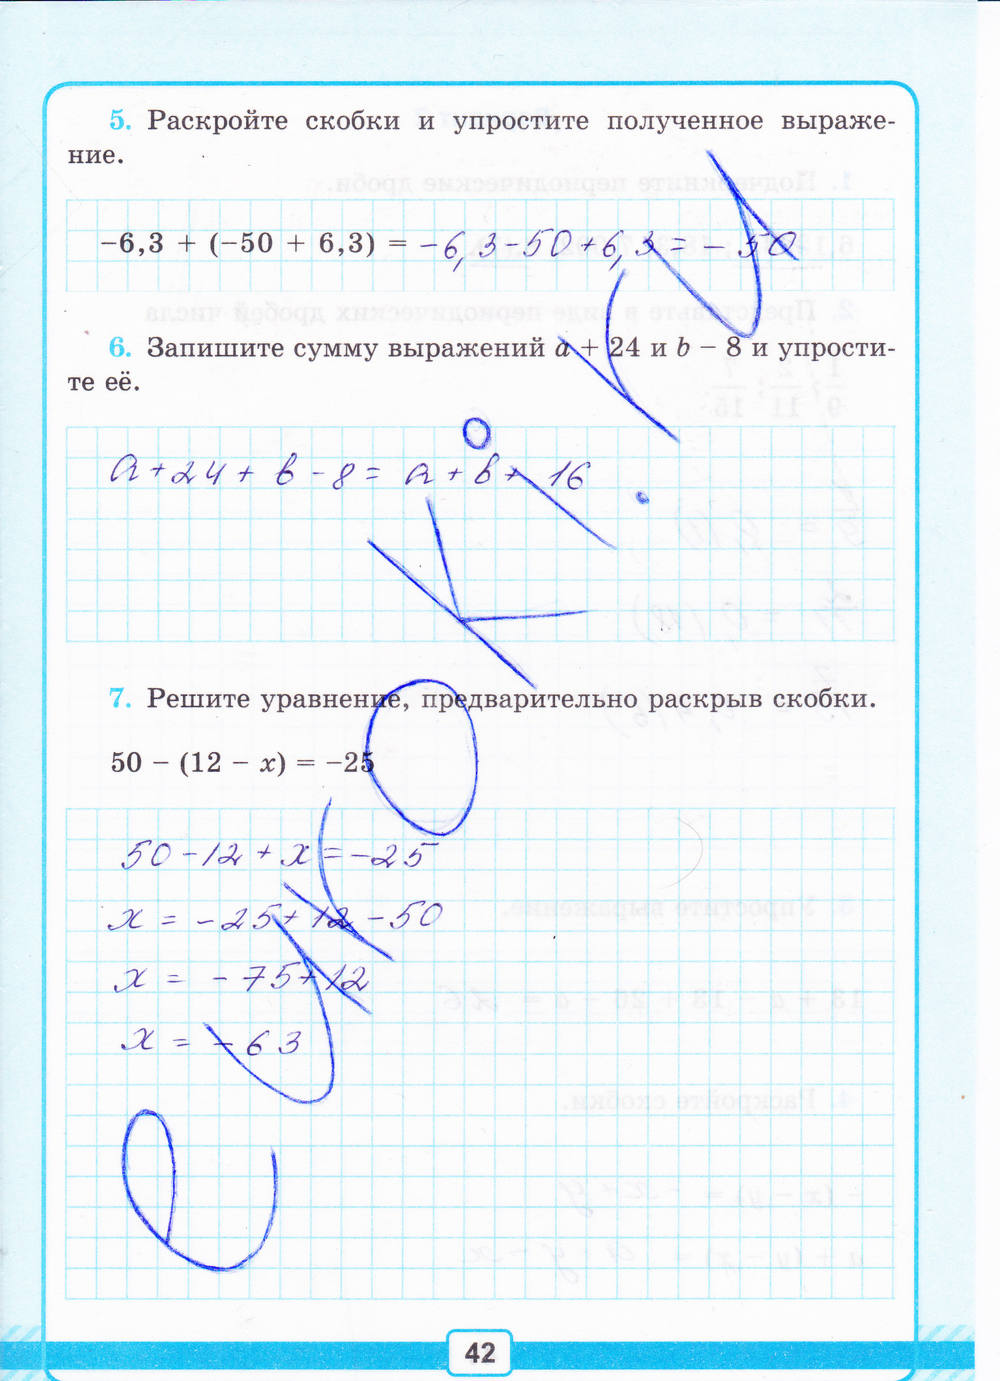 5. Раскройте скобки и упростите полученное выраже-
ние.
−6,3 + (−50 + 6,3) = -6,3-50+6,3 = -50
6. Запишите сумму выражений a + 24 и b − 8 и упрости-
те её.
a+24+ b -8= a+b+ 16
7. Решите уравнение, предварительно раскрыв скобки.
50 − (12 − x) = −25
50-12+x=-25
x = -25+12-50
x = -75+12
x = -63
eurokki.ru
42